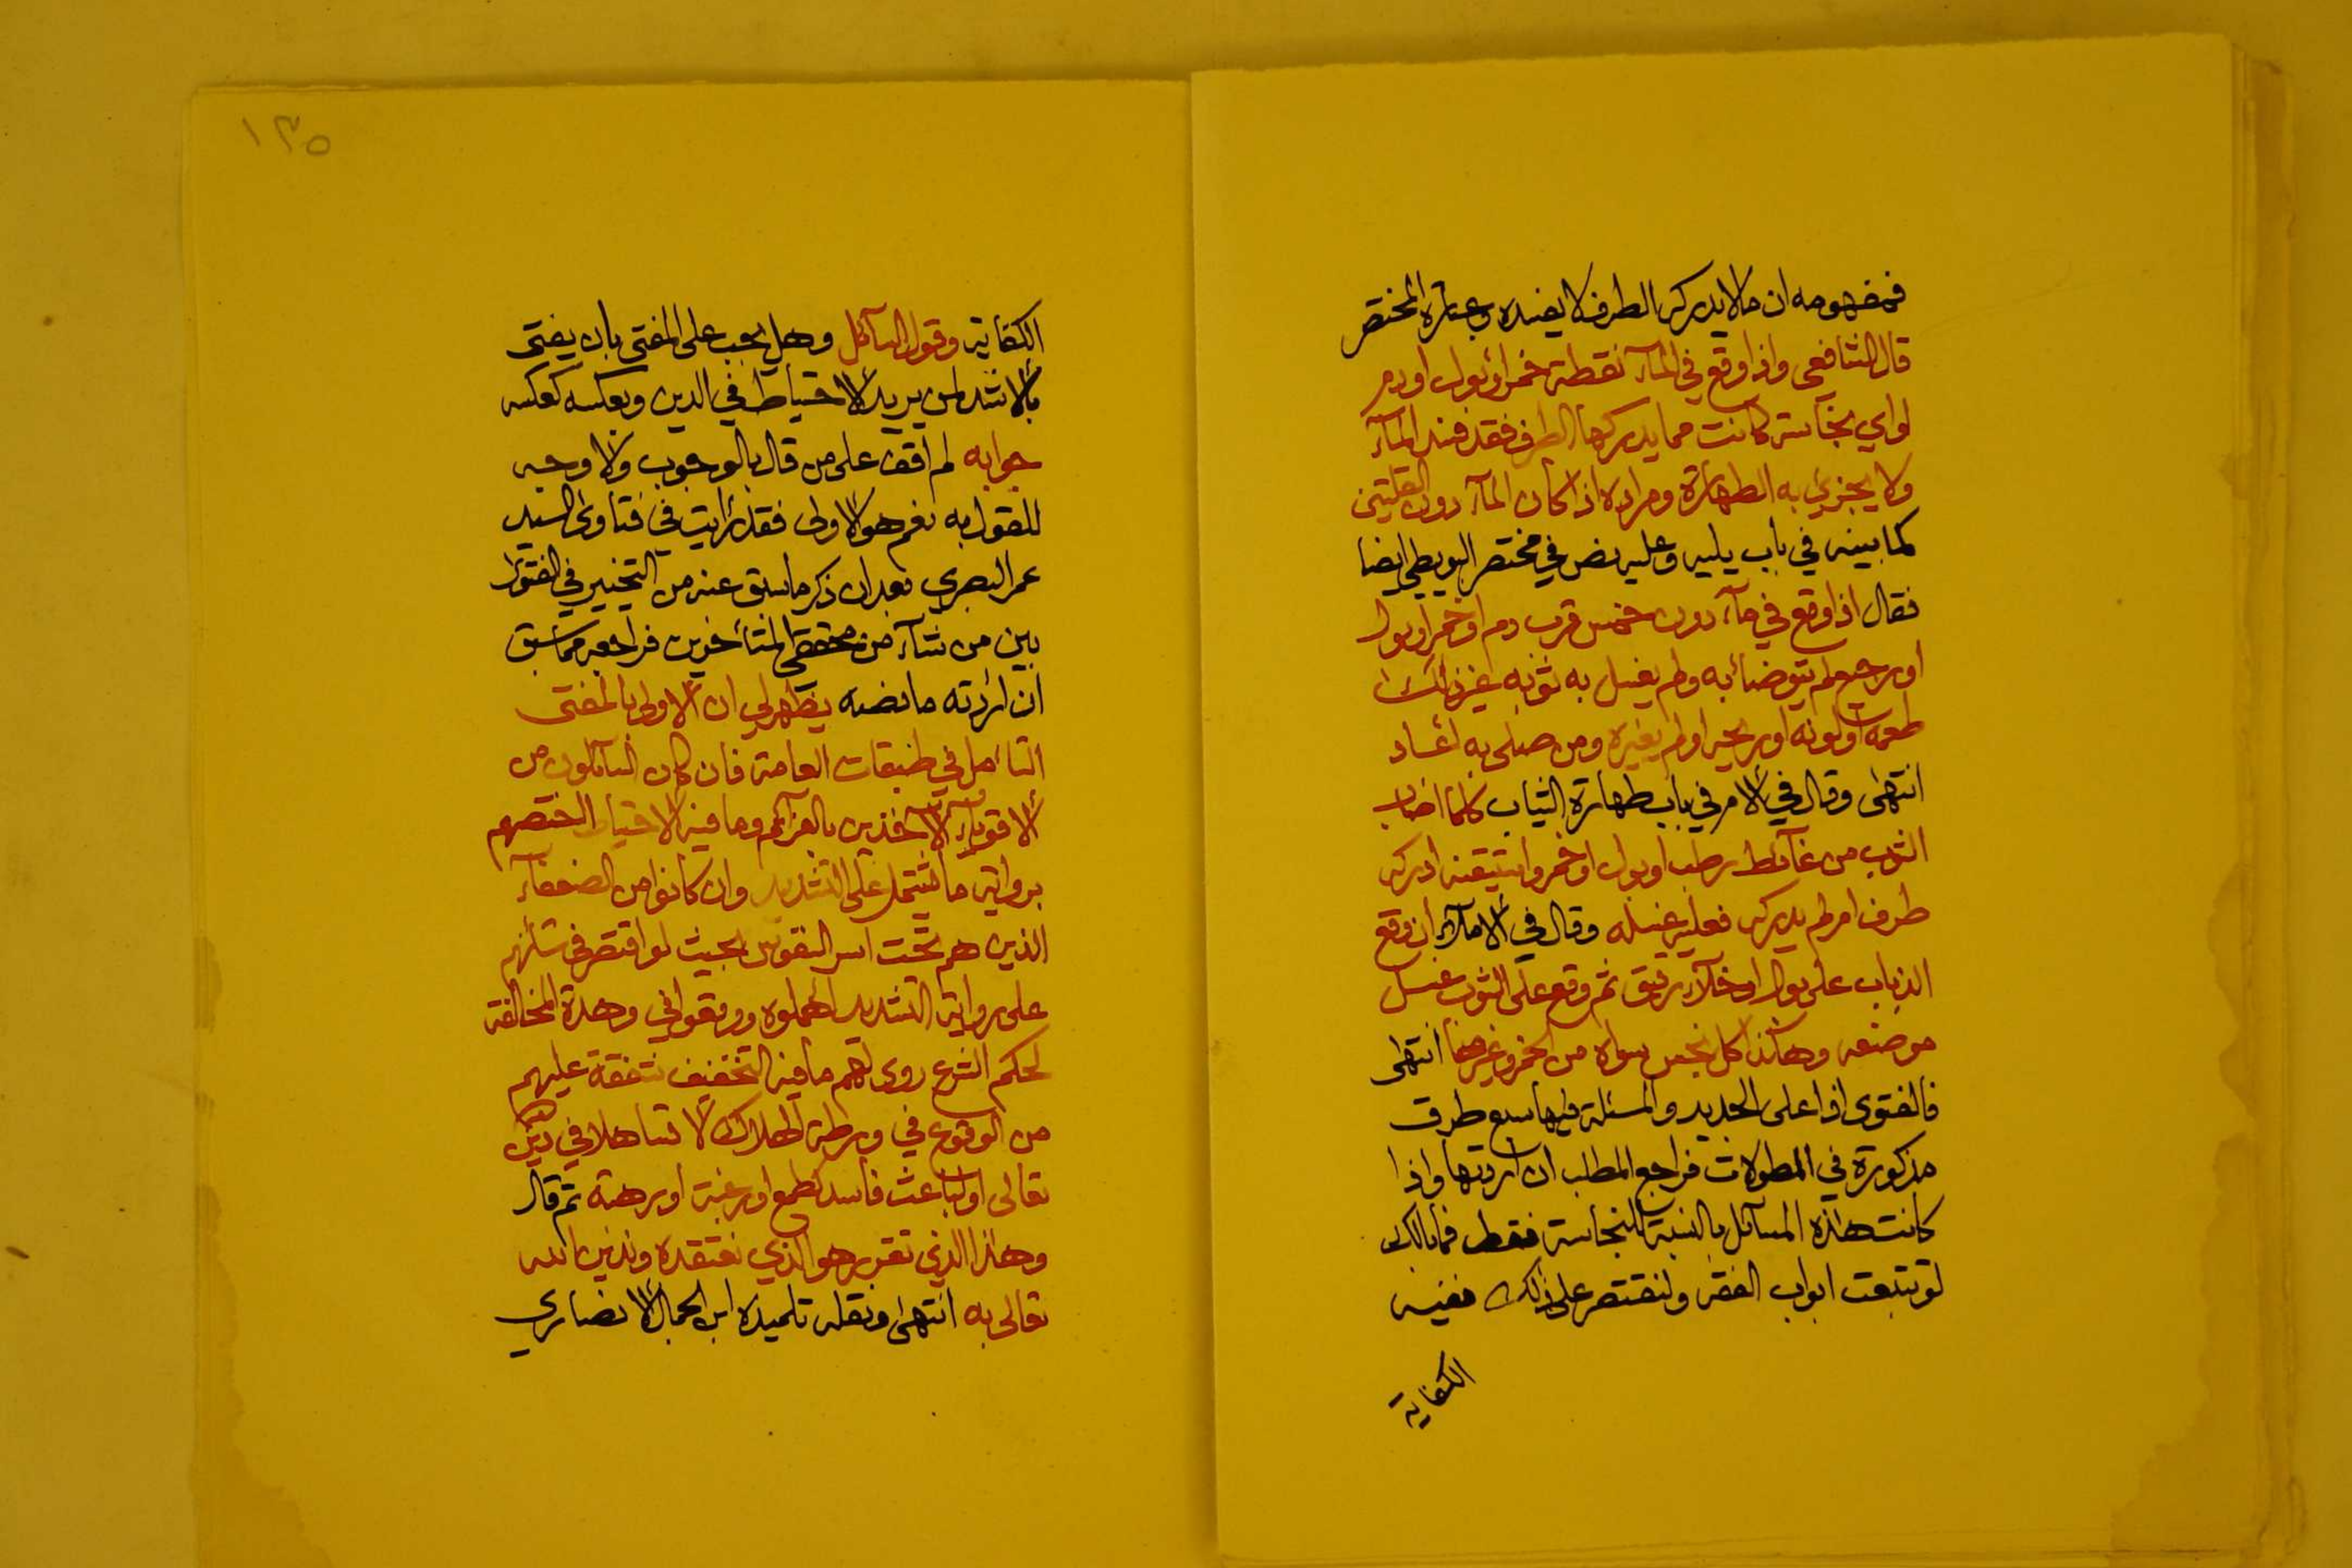 فمفهومه ان ما لا يدركه الطرف لا يفسده وعبارة المختصر
قال الشافعي واذا وقع في المآء نقطة خمر او بول او دم
او اي نجاسة كانت مما يدركها الطرف فقد فسد المآء
ولا يجزئ به الطهارة ومراده اذا كان المآء دون القلتين
كما بينه في باب يليه وعليه نص في مختصر البويطي ايضا
فقال اذا وقع في مآء دون خمس قرب دم او خمر او بول
او رجيع لم يتوضأ به ولم يغسل به ثوبه غير ذلك
طعمه او لونه او ريحه او لم يغيره ومن صلى به أعاد
انتهى وقال في الأم في باب طهارة الثياب كلما اصاب
الثوب من غآئط رطب او بول او خمر واستيقنه ادركه
طرف ام لم يدركه فعليه غسله وقال في الاملآء ان وقع
الذباب على بول او خلآء رقيق ثم وقع على الثوب غسل
موضعه وهكذا كل نجس سواه من الخمر وغيرها انتهى
فالفتوى اذا على الجديد والمسئلة فيها سبع طرق
مذكورة في المطولات فراجع المطلب ان اردتها واذا
كانت هذه المسآئل بالنسبة للنجاسة فقط فما بالك
لو تتبعت ابواب الفقه ولنقتصر على ذلك ففيه
الكفاية
١٣٥
الكفاية وقول السآئل وهل يجب على المفتى بان يفتى
بالاشد لمن يريد الاحتياط في الدين وبعكسه كعكسه
جوابه لم اقف على من قال بالوجوب ولا وجه
للقول به نعم هو الاولى فقد رأيت في فتاوى السيد
عمر البصري بعد ان ذكر ما سبق عنه من التخيير في الفتوى
بين من شآء من محققي المتأخرين فراجعه مما سبق
ان اردته ما نصه يظهر لي ان الاولى بالمفتى
التأمل في طبقات العامة فان كان السآئلون من
الاقويآء الآخذين بالعزآئم وما فيه الاحتياط اختصهم
برواية ما يشتمل على التشديد وان كانوا من الضعفآء
الذين هم تحت اسر النفوس بحيث لو اقتصر في شأنهم
على رواية التشديد اهملوه ووقعوا في وهدة المخالفة
لحكم الشرع روى لهم ما فيه التخفيف شفقة عليهم
من الوقوع في ورطة الهلاك لا تساهلا في دين الله
تعالى او لباعث فاسد كطمع او رغبة او رهبة ثم قال
وهذا الذي تقرر هو الذي نعتقده وندين الله
تعالى به انتهى ونقله تلميذه ابن الجمال الانصاري